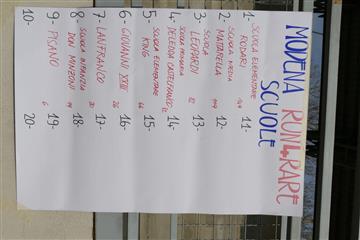 MODENA RUN4RARE
SCUOLE
1- SCUOLA ELEMENTARE
RODARI
2- SCUOLA MEDIA
MATTARELLA
3- SCUOLA
LEOPARDI
4- SCUOLA PRIMARIA
DELEDDA CASTELFRANCO E.
5- SCUOLA ELEMENTARE
KING
6- GIOVANNI XXIII
7- LANFRANCO
8- SCUOLA INFANZIA
DON MINZONI
9- PICAVO
10-
11-
12-
13-
14-
15-
16-
17-
18-
19-
20-